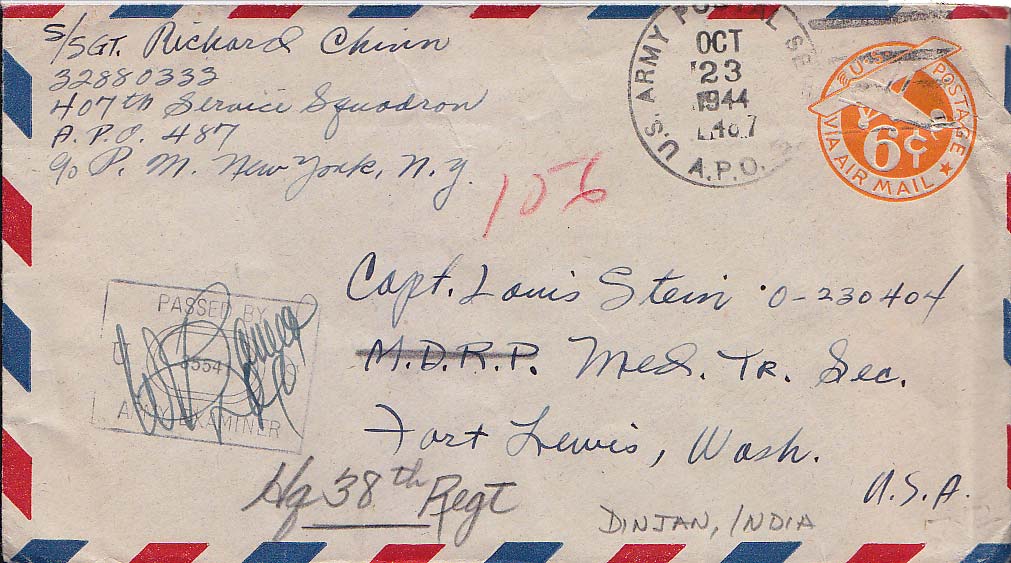 S/SGT. Richard Chinn
32880333
407th Service Squadron
A.P.O. 487
c/o P. M. New York, N.Y.
U.S. ARMY POSTAL SE
OCT
23
1944
487
A.P.O.
U.S. POSTAGE
6¢
VIA AIR MAIL
156
Capt. Louis Stein O-230404
M.D.R.P. Med. TR. Sec.
Fort Lewis, Wash.
U.S.A.
PASSED BY
ARMY EXAMINER
Hq 38th Regt
DINJAN, INDIA